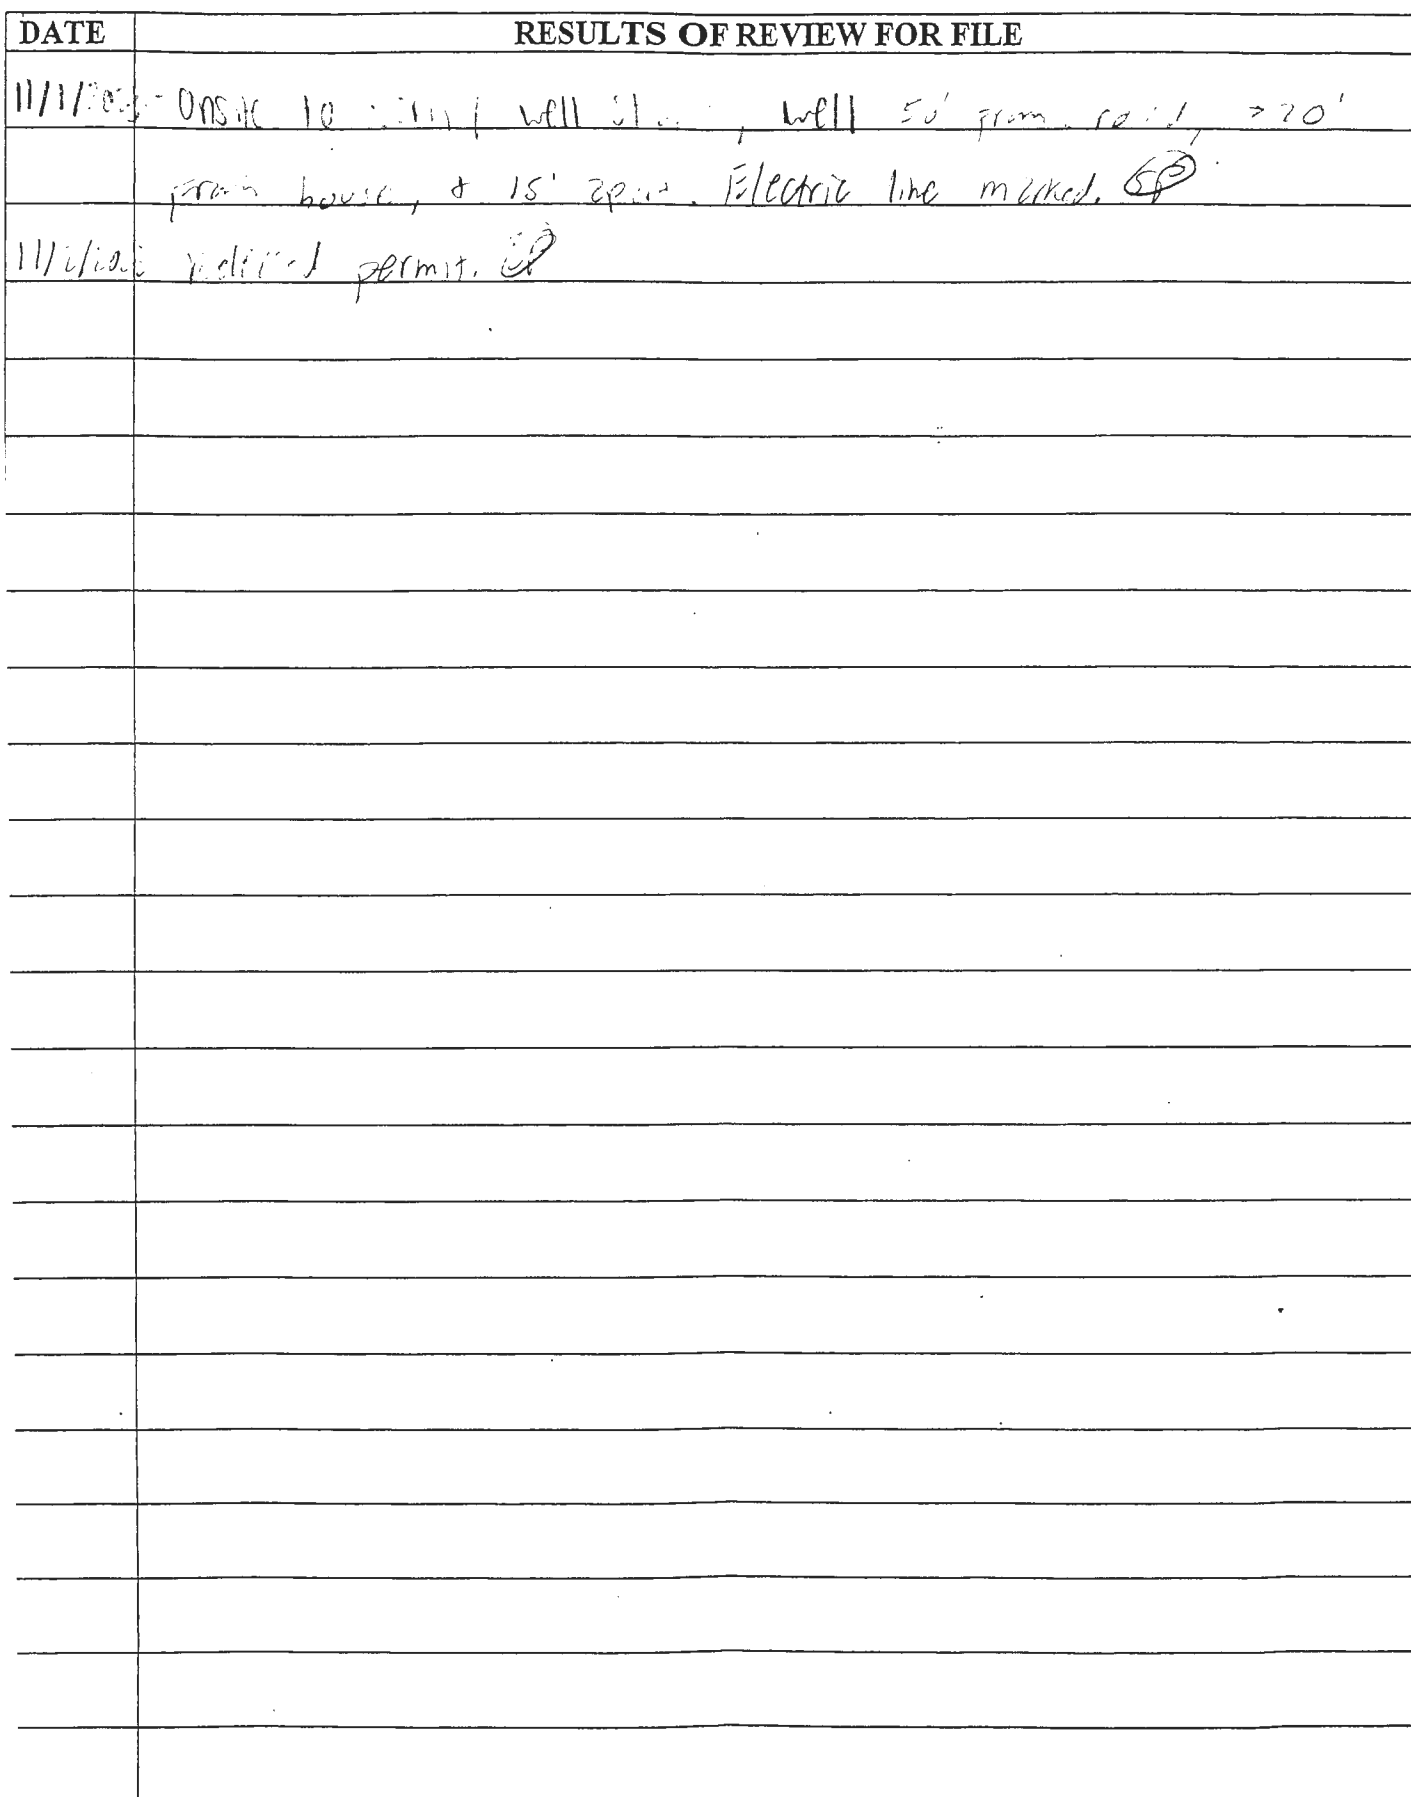 DATE RESULTS OF REVIEW FOR FILE
11/1/ Onsite to well , well 50' from road, >20'
from house, & 15' apart. Electric line marked. SP
permit. SP